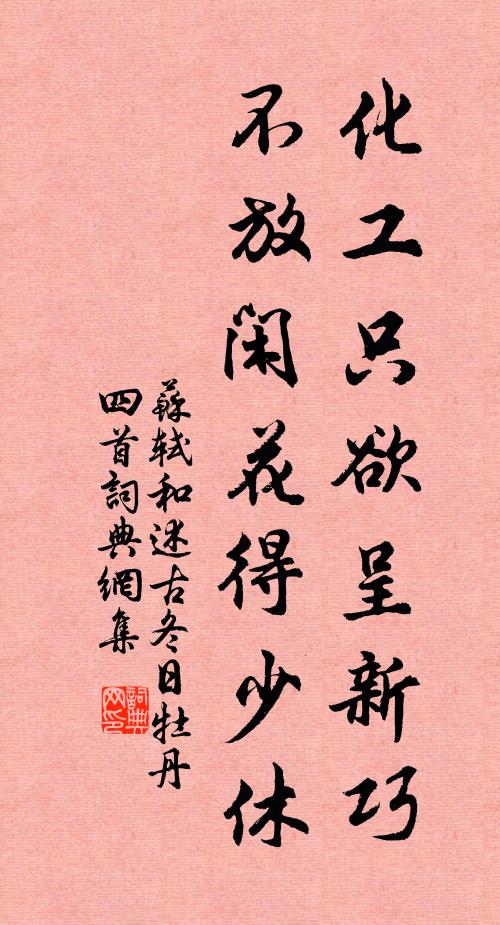 化工只欲呈新巧
不放閑花得少休
蘇軾和述古冬日牡丹
四首詞典網集
詞典
网印